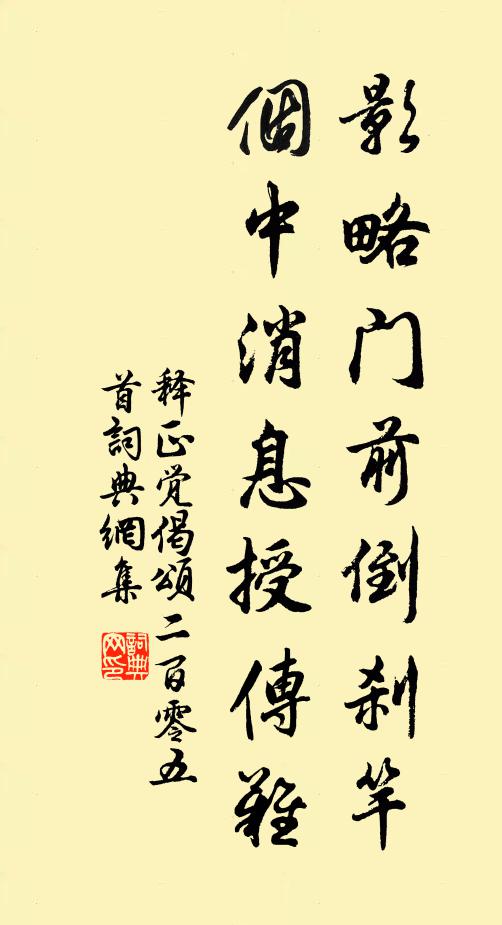 影略门前倒刹竿
個中消息授傳難
释正觉偈頌二百零五
首詞典網集
詞典网印